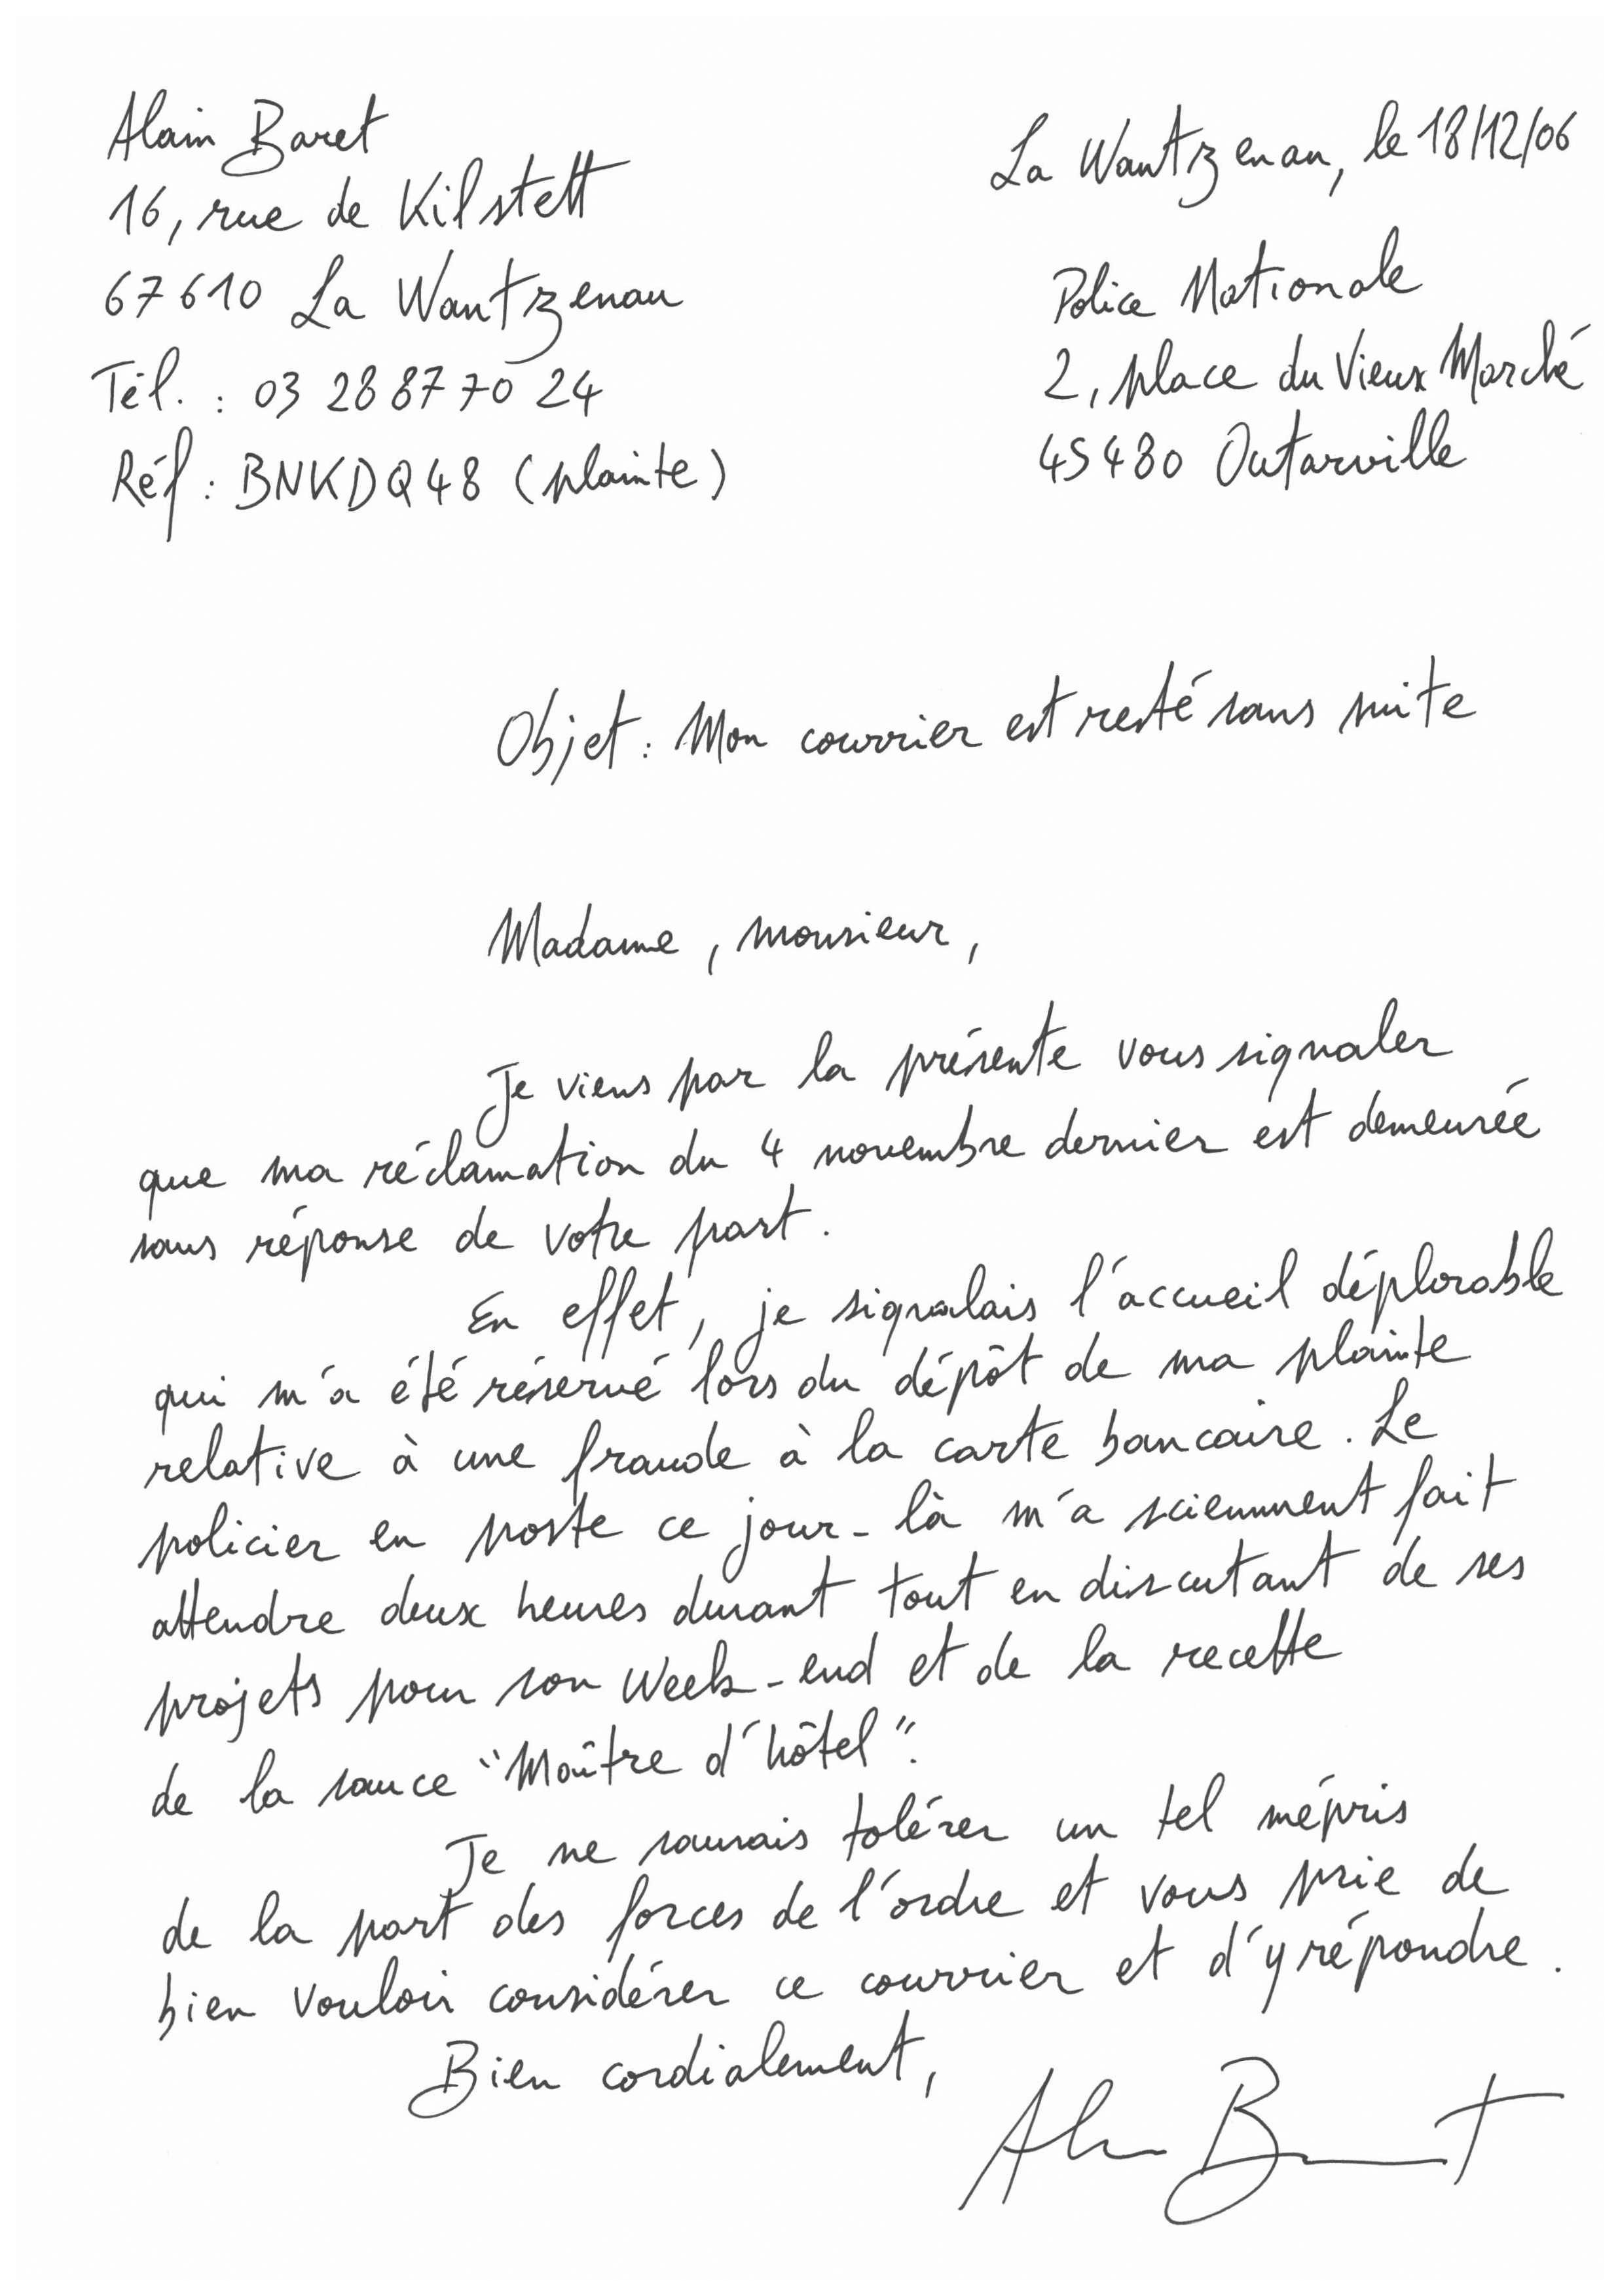 Alain Baret
16, rue de Kilstett
67610 La Wantzenau
Tél. : 03 28 87 70 24
Réf : BNKDQ48 (plainte)
La Wantzenau, le 18/12/06
Police Nationale
2, place du Vieux Marché
45480 Outarville
Objet : Mon courrier est resté sans suite
Madame, monsieur,
Je viens par la présente vous signaler
que ma réclamation du 4 novembre dernier est demeurée
sans réponse de votre part.
En effet, je signalais l'accueil déplorable
qui m'a été réservé lors du dépôt de ma plainte
relative à une fraude à la carte bancaire. Le
policier en poste ce jour-là m'a sciemment fait
attendre deux heures durant tout en discutant de ses
projets pour son week-end et de la recette
de la sauce "Maître d'hôtel".
Je ne saurais tolérer un tel mépris
de la part des forces de l'ordre et vous prie de
bien vouloir considérer ce courrier et d'y répondre.
Bien cordialement,
Alain Baret